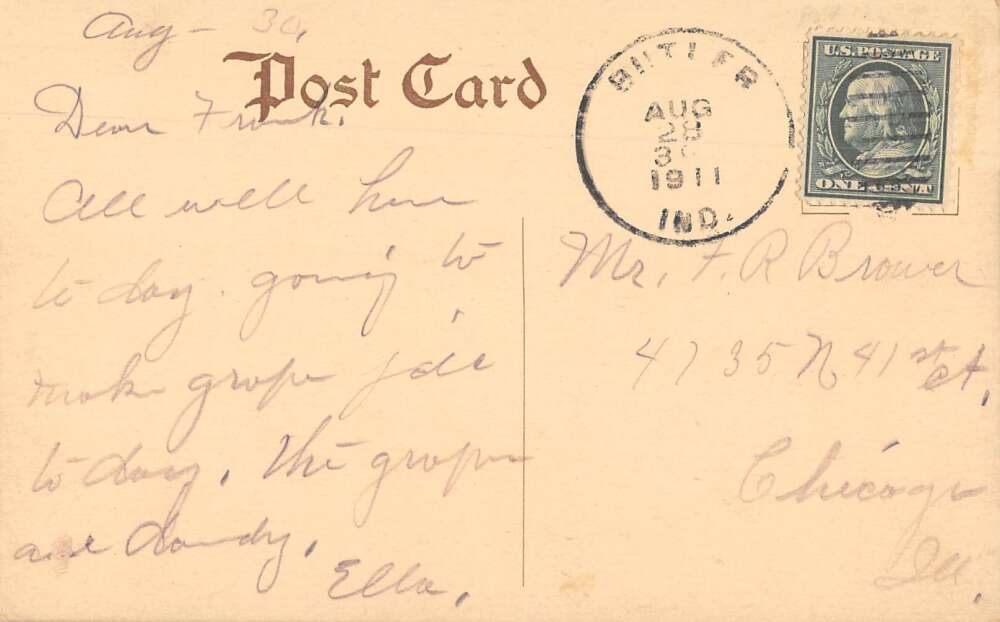 Aug - 30,
Post Card
Dear Frank.
All well here
to day. going to
make grape jell
to day. The grapes
are dandy,
Ella,
BUTLER
AUG
28
1911
IND.
U.S. POSTAGE
ONE CENT
Mr. F. R Brower
4735 N 41st Ct,
Chicago
Ill,